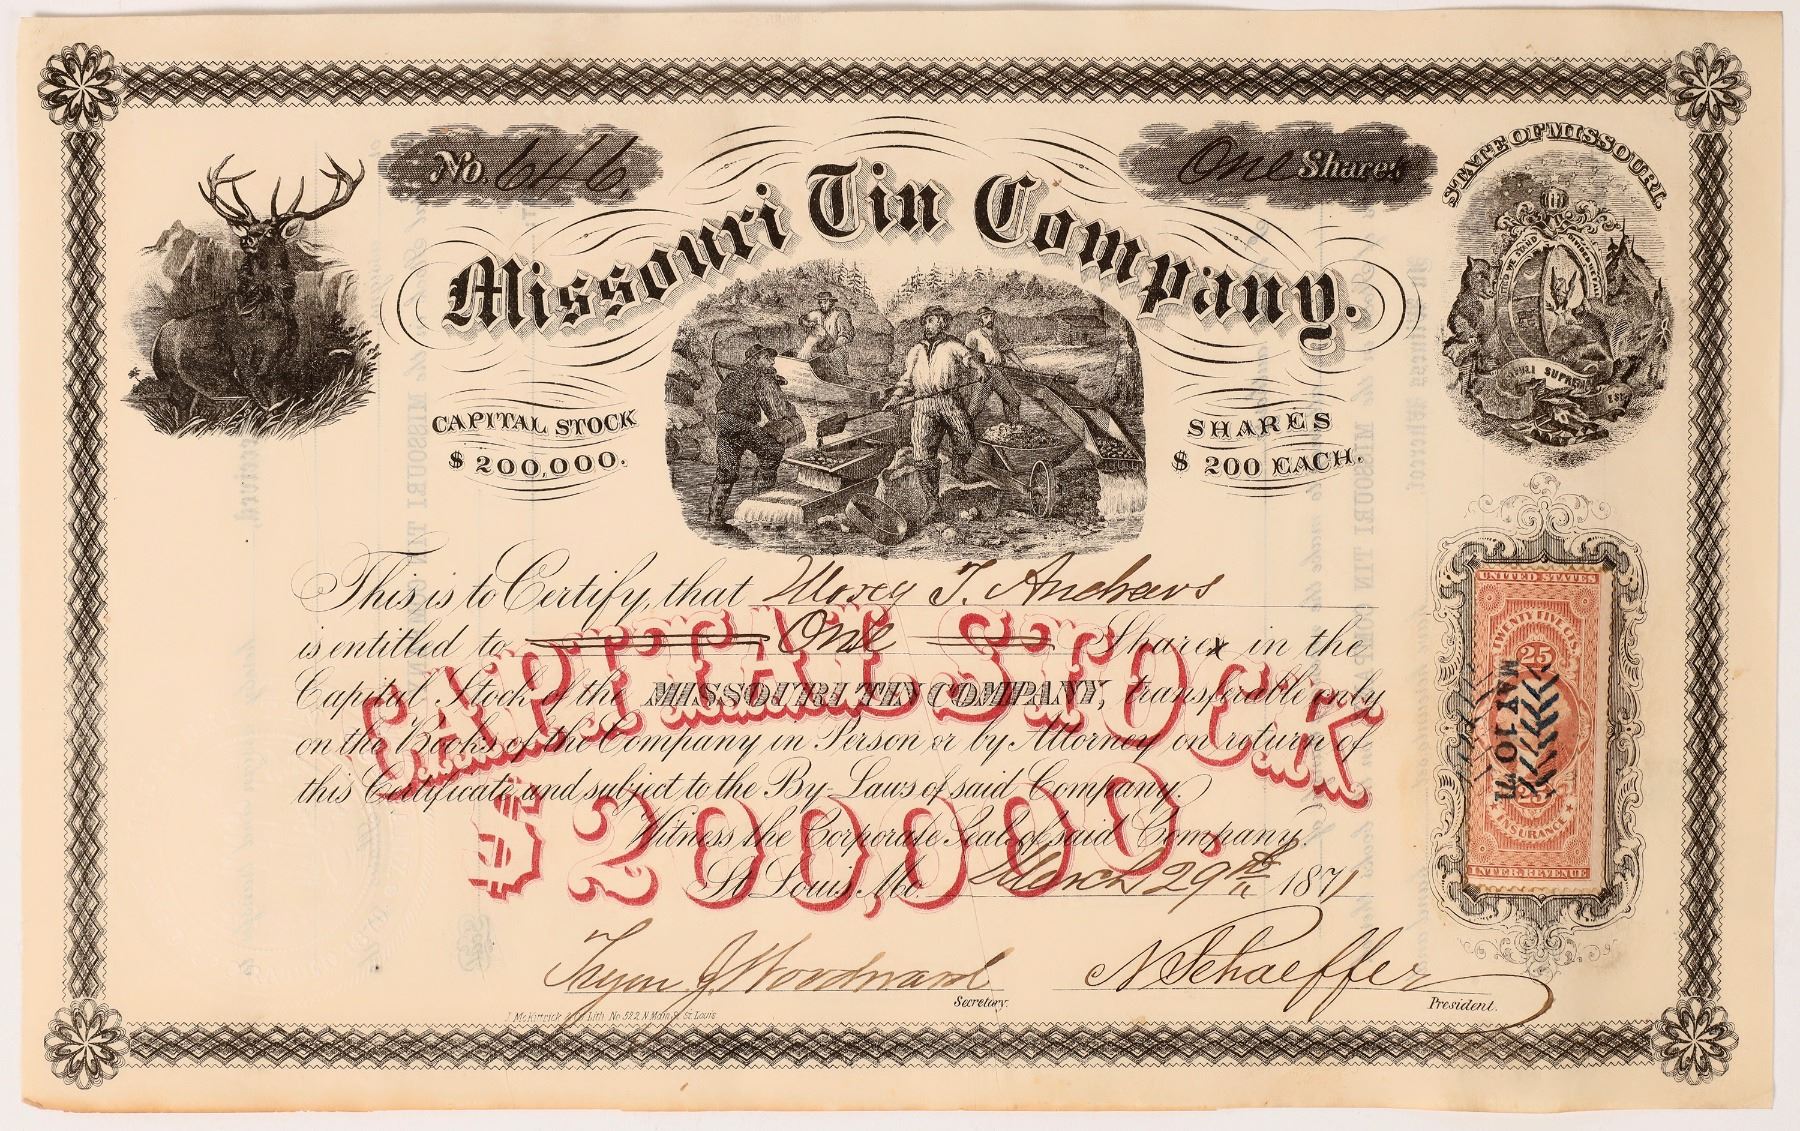 No. 646.
One Shares
STATE OF MISSOURI.
Missouri Tin Company.
CAPITAL STOCK
$ 200,000.
SHARES
$ 200 EACH.
This is to Certify, that T. Andrews
is entitled to One Share in the
Capital Stock of the MISSOURI TIN COMPANY, transferable only
on the Books of the Company in Person or by Attorney on return of
this Certificate and subject to the By-Laws of said Company.
Witness the Corporate Seal of said Company.
St. Louis, Mo. March 29th 1871
CAPITAL STOCK
$200,000.
UNITED STATES
TWENTY FIVE CTS.
25
MAY. 10 71
25
INSURANCE
INTER. REVENUE
Tryon J Woodward
Secretary.
N Schaeffer
President.
J. McKittrick & Co. Lith. No. 522 N. Main St. St. Louis